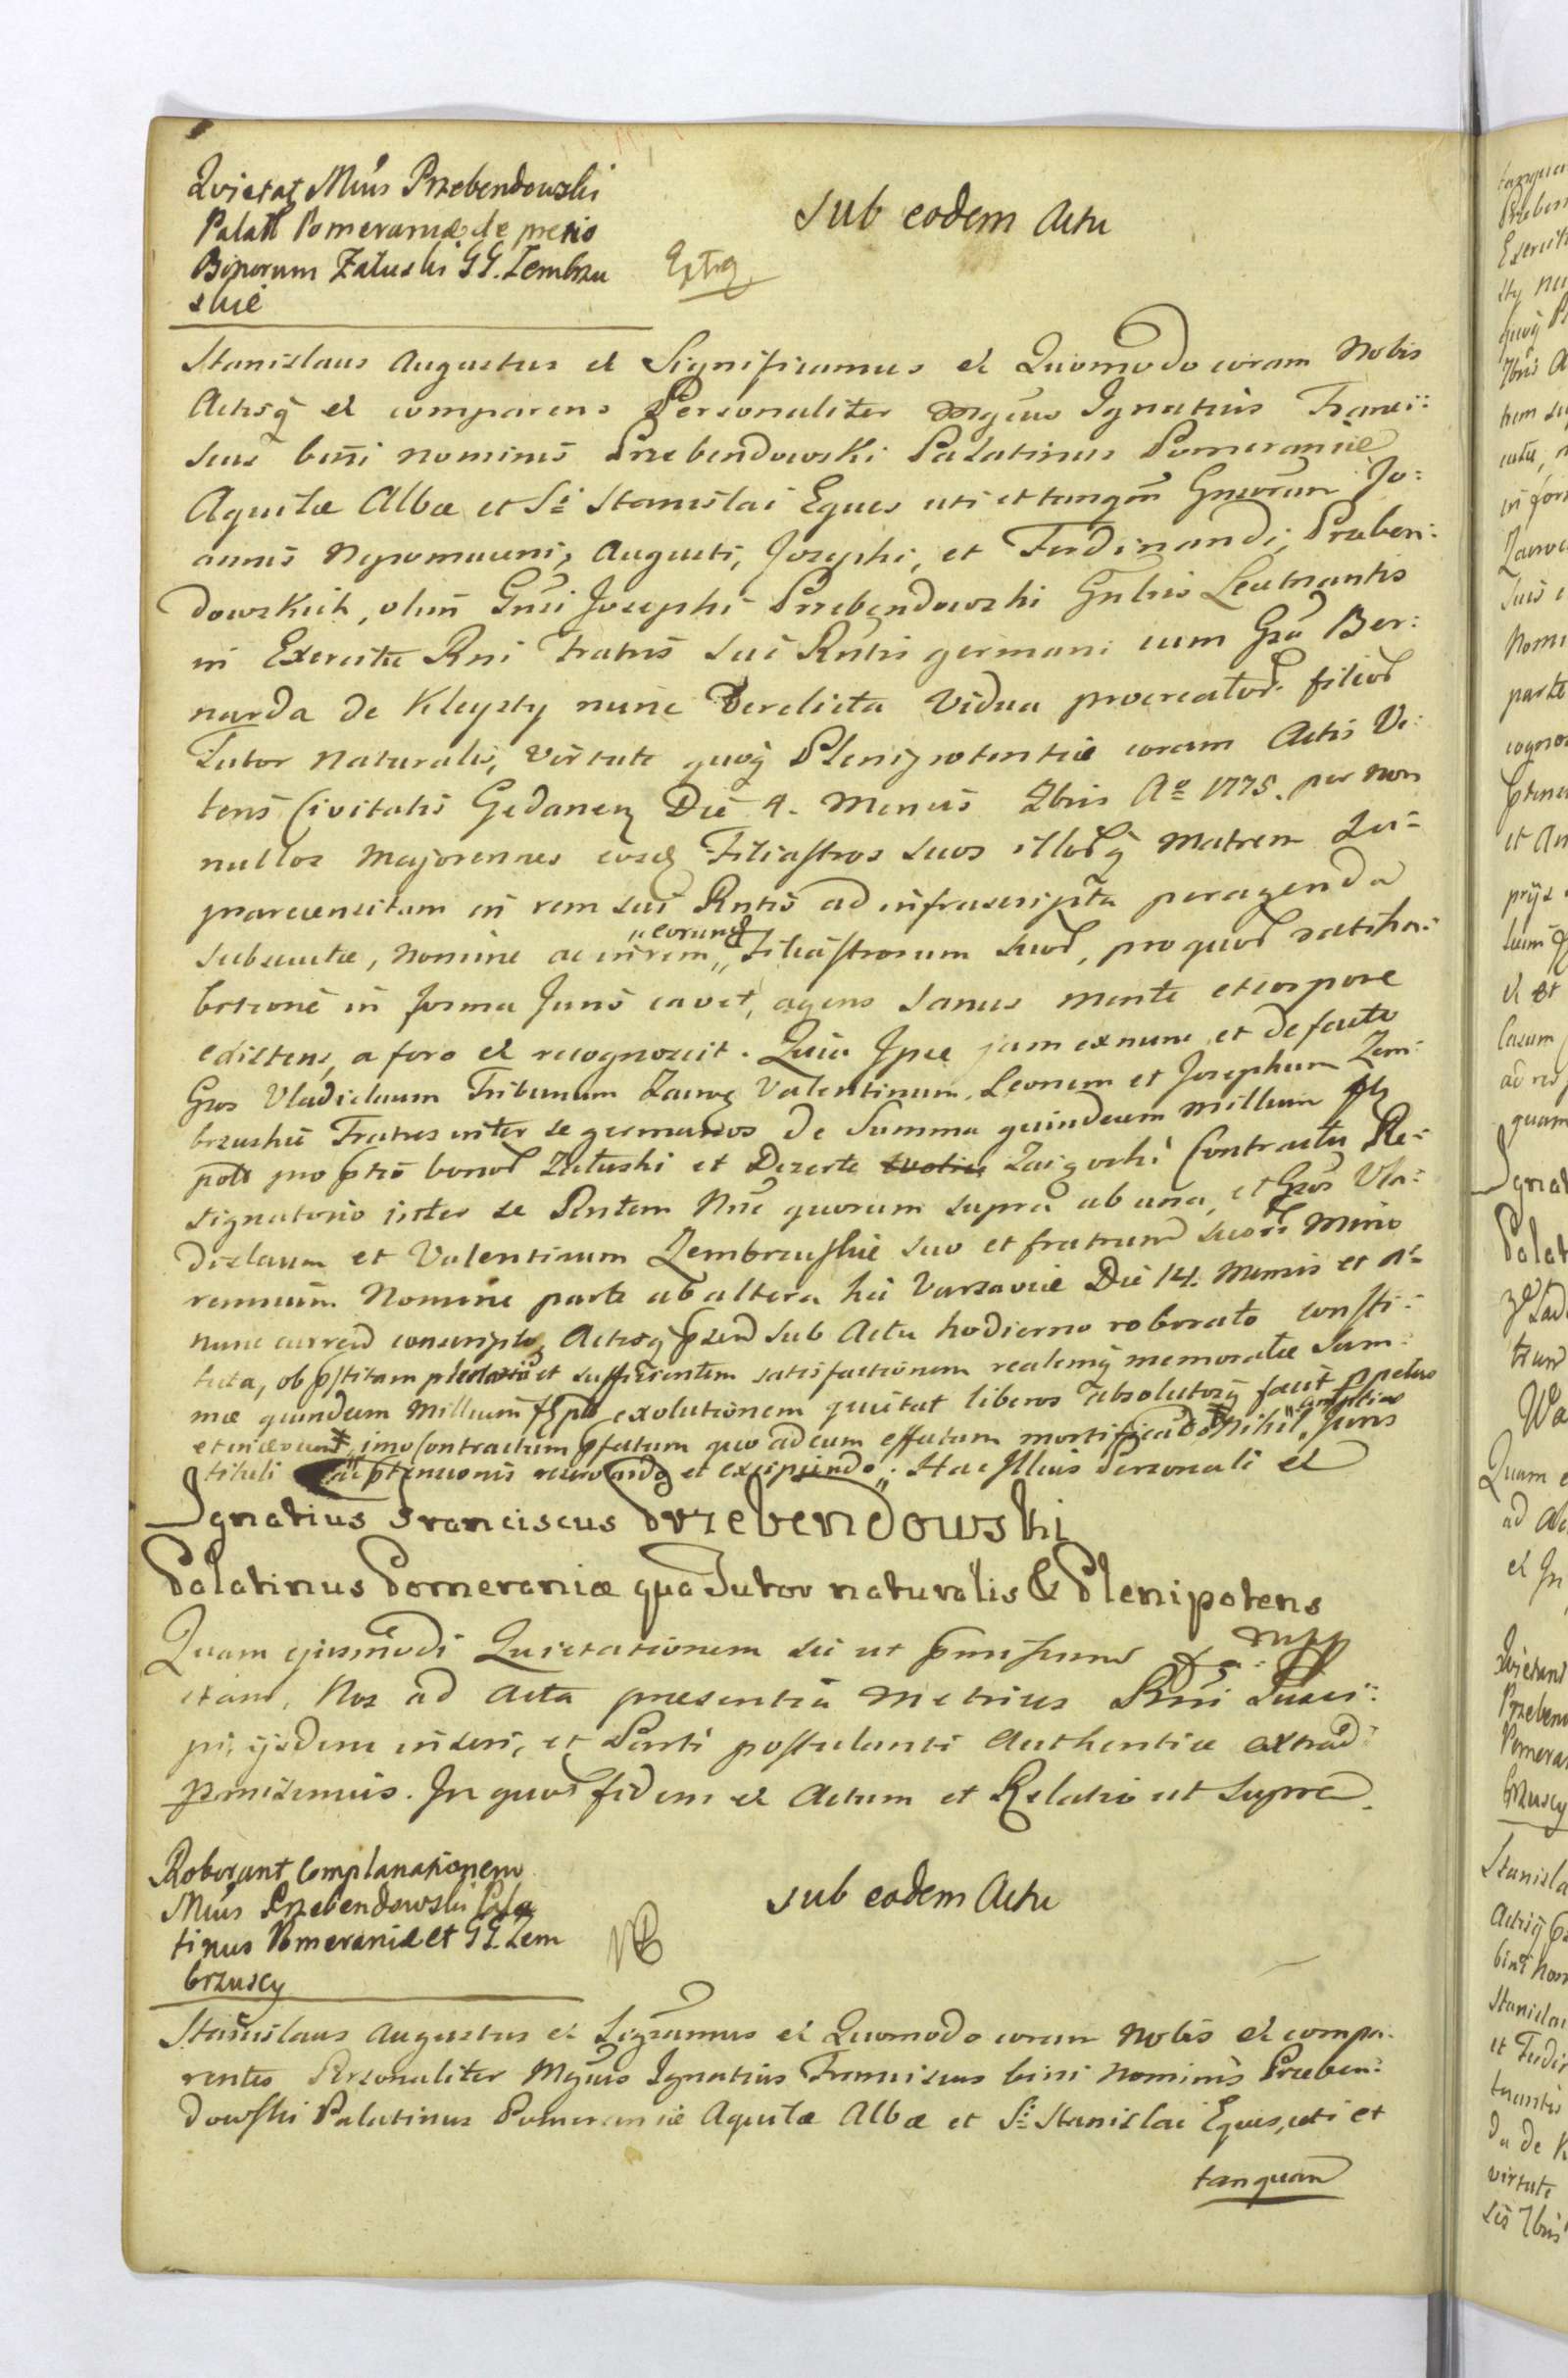 Qvietat Mcus Przebendowski
Palat Pomeraniæ de pretio
Bonorum Załuski GG. Zembrzu
skie
Extr.
Sub eodem Actu
Stanislaus Augustus et Significamus et Quomodo coram Nobis
Actisq et comparens Personaliter Mgcus Ignatius Franci:
scus bini nominis Przebendowski Palatinus Pomeraniæ
Aquilæ Albæ et Sⁱ Stanislai Eques uti et tanqm Gnsorum Jo:
annis Nepomuceni, Augusti, Josephi, et Ferdinandi, Przeben:
dowskich, olim Gnsi Josephi Przebendowski Gnlis Leutnantis
in Exercitu Rni Fratris sui Rntis germani cum Gsa Ber:
narda de Kleysty nunc derelicta Vidua procreator filior
Tutor Naturalis, virtute quoq Plenipotentiæ coram Actis Ve:
teris Civitatis Gedanen Die 4. Mensis Xbris Aº 1775. per non
nullos Majorennes eosq Filiastros suos illorq Matrem
in rem sui Rntis ad infrascripta peragenda
subsecutæ, nomine ac in rem „eorund„ Filiastrorum suor, pro quor ratiha:
betione in forma Juris cavet, agens sanus mente et corpore
existens, a foro et recognoscit. Quia Ipse jam ex nunc et de facto
Gsos Vladislaum Tribunum Zawcr Valentinum, Leonem et Josephum Zem:
brzuskie Fratres inter se germanos de Summa quindecim millium fl
pol pro ptio bonor Załuski et Dezerte Zaigoski Contractu Re:
signatorio inter se Rntem Nne quorum supra ab una, et Gsos Vla:
dislaum et Valentinum Zembrzuskie suo et fratrum suor Mino
rennium Nomine parte ab altera hic Varsaviæ Die 14. Mensis et A
nunc curren conscripto, Actisq psen sub Actu hodierno roborato consti:
tuta, ob pstitam plenariā et sufficientem satisfactionem realemq memoratæ Sum:
mæ quindecim Millium fl pol exolutionem quietat liberos absolutosq facit ppetuo
et in ævum, imo Contractum pfatum quo ad eum effectum mortificado Nihil „amplius Juris
tituli ac ptensionis reservando et excipiendo„. Hac Illius Personali et
Ignatius Franciscus Przebendowski
Palatinus Pomeraniæ qua Tutor naturalis & Plenipotens
mpp
Quam ejusmodi Quietationem sic ut pmissum
Nos ad Acta præsentia Metrices Rni Susci:
pi, ijsdem inseri, et Parti postulanti Authentice extrad
pmisimus. In quor fidem et Actum et Relatio ut Supra.
Roborant Complanationem
Mcus Przebendowski Pala
tinus Pomeraniæ et GG. Zem
brzuscy
NB
Sub eodem Actu
Stanislaus Augustus et Signamus et Quomodo coram Nobis et compa-
rentes Personaliter Mgcus Ignatius Franciscus bini Nominis Przeben:
dowski Palatinus Pomeraniæ Aquilæ Albæ et Sⁱ Stanislai Eques, uti et
tanquam